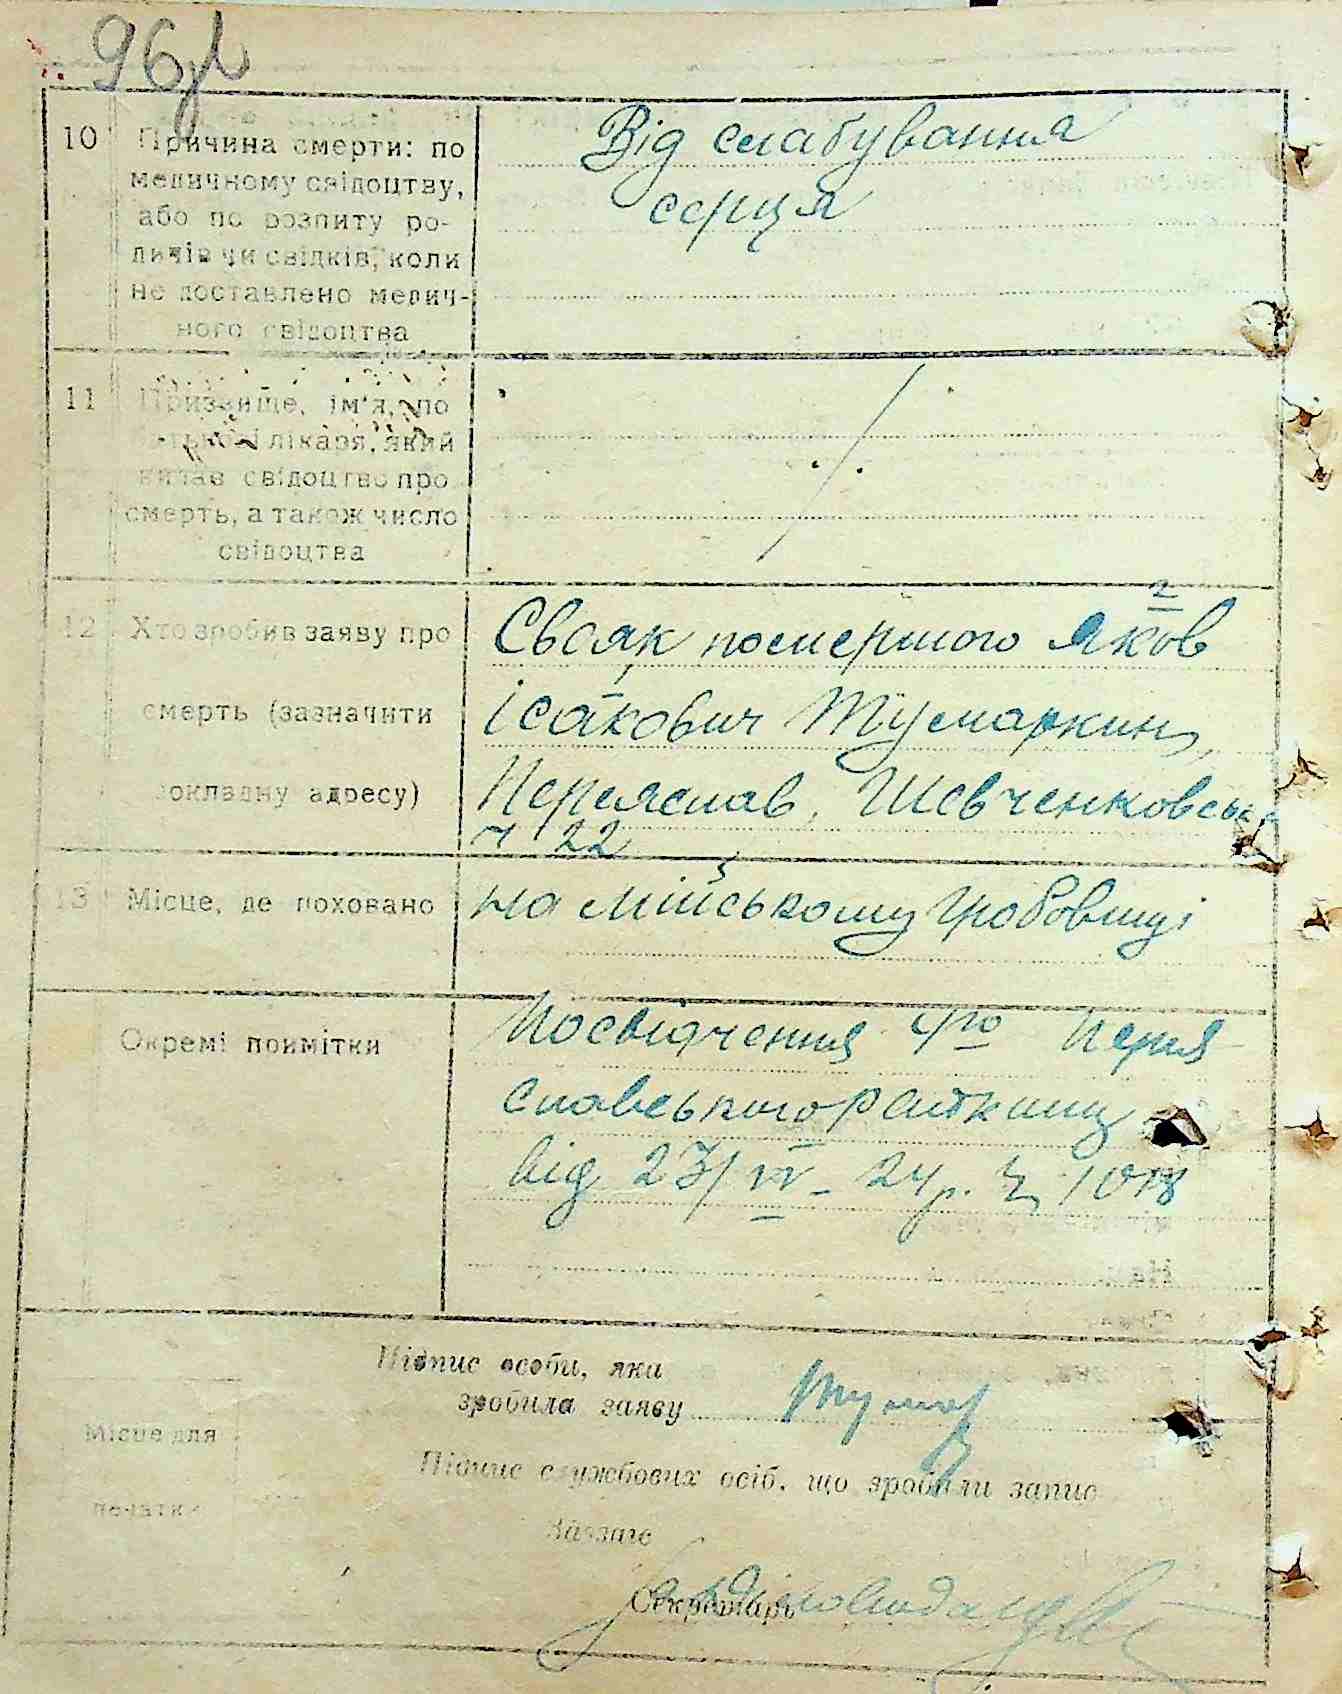 96
10
Причина смерти: по
медичному свідоцтву,
або по розпиту ро-
дичів чи свідків, коли
не доставлено медич-
ного свідоцтва
Від слабування
серця
11
Призвище, ім'я, по
лікаря, який
видав свідоцтво про
смерть, а також число
свідоцтва
12
Хто зробив заяву про
смерть (зазначити
докладну адресу)
Свояк помершого Яков
Ісакович Тумаркин,
Переяслав, Шевченковська
ч 22
13
Місце, де поховано
на міському гробовищі
Окремі помітки
Посвідчення Перея
славського
від 23/VI - 24 р. 1018
Підпис особи, яка
зробила заяву
Тумар
Місце для
печатки
Підпис службових осіб, що зробили запис
Завзагс
Секретарь